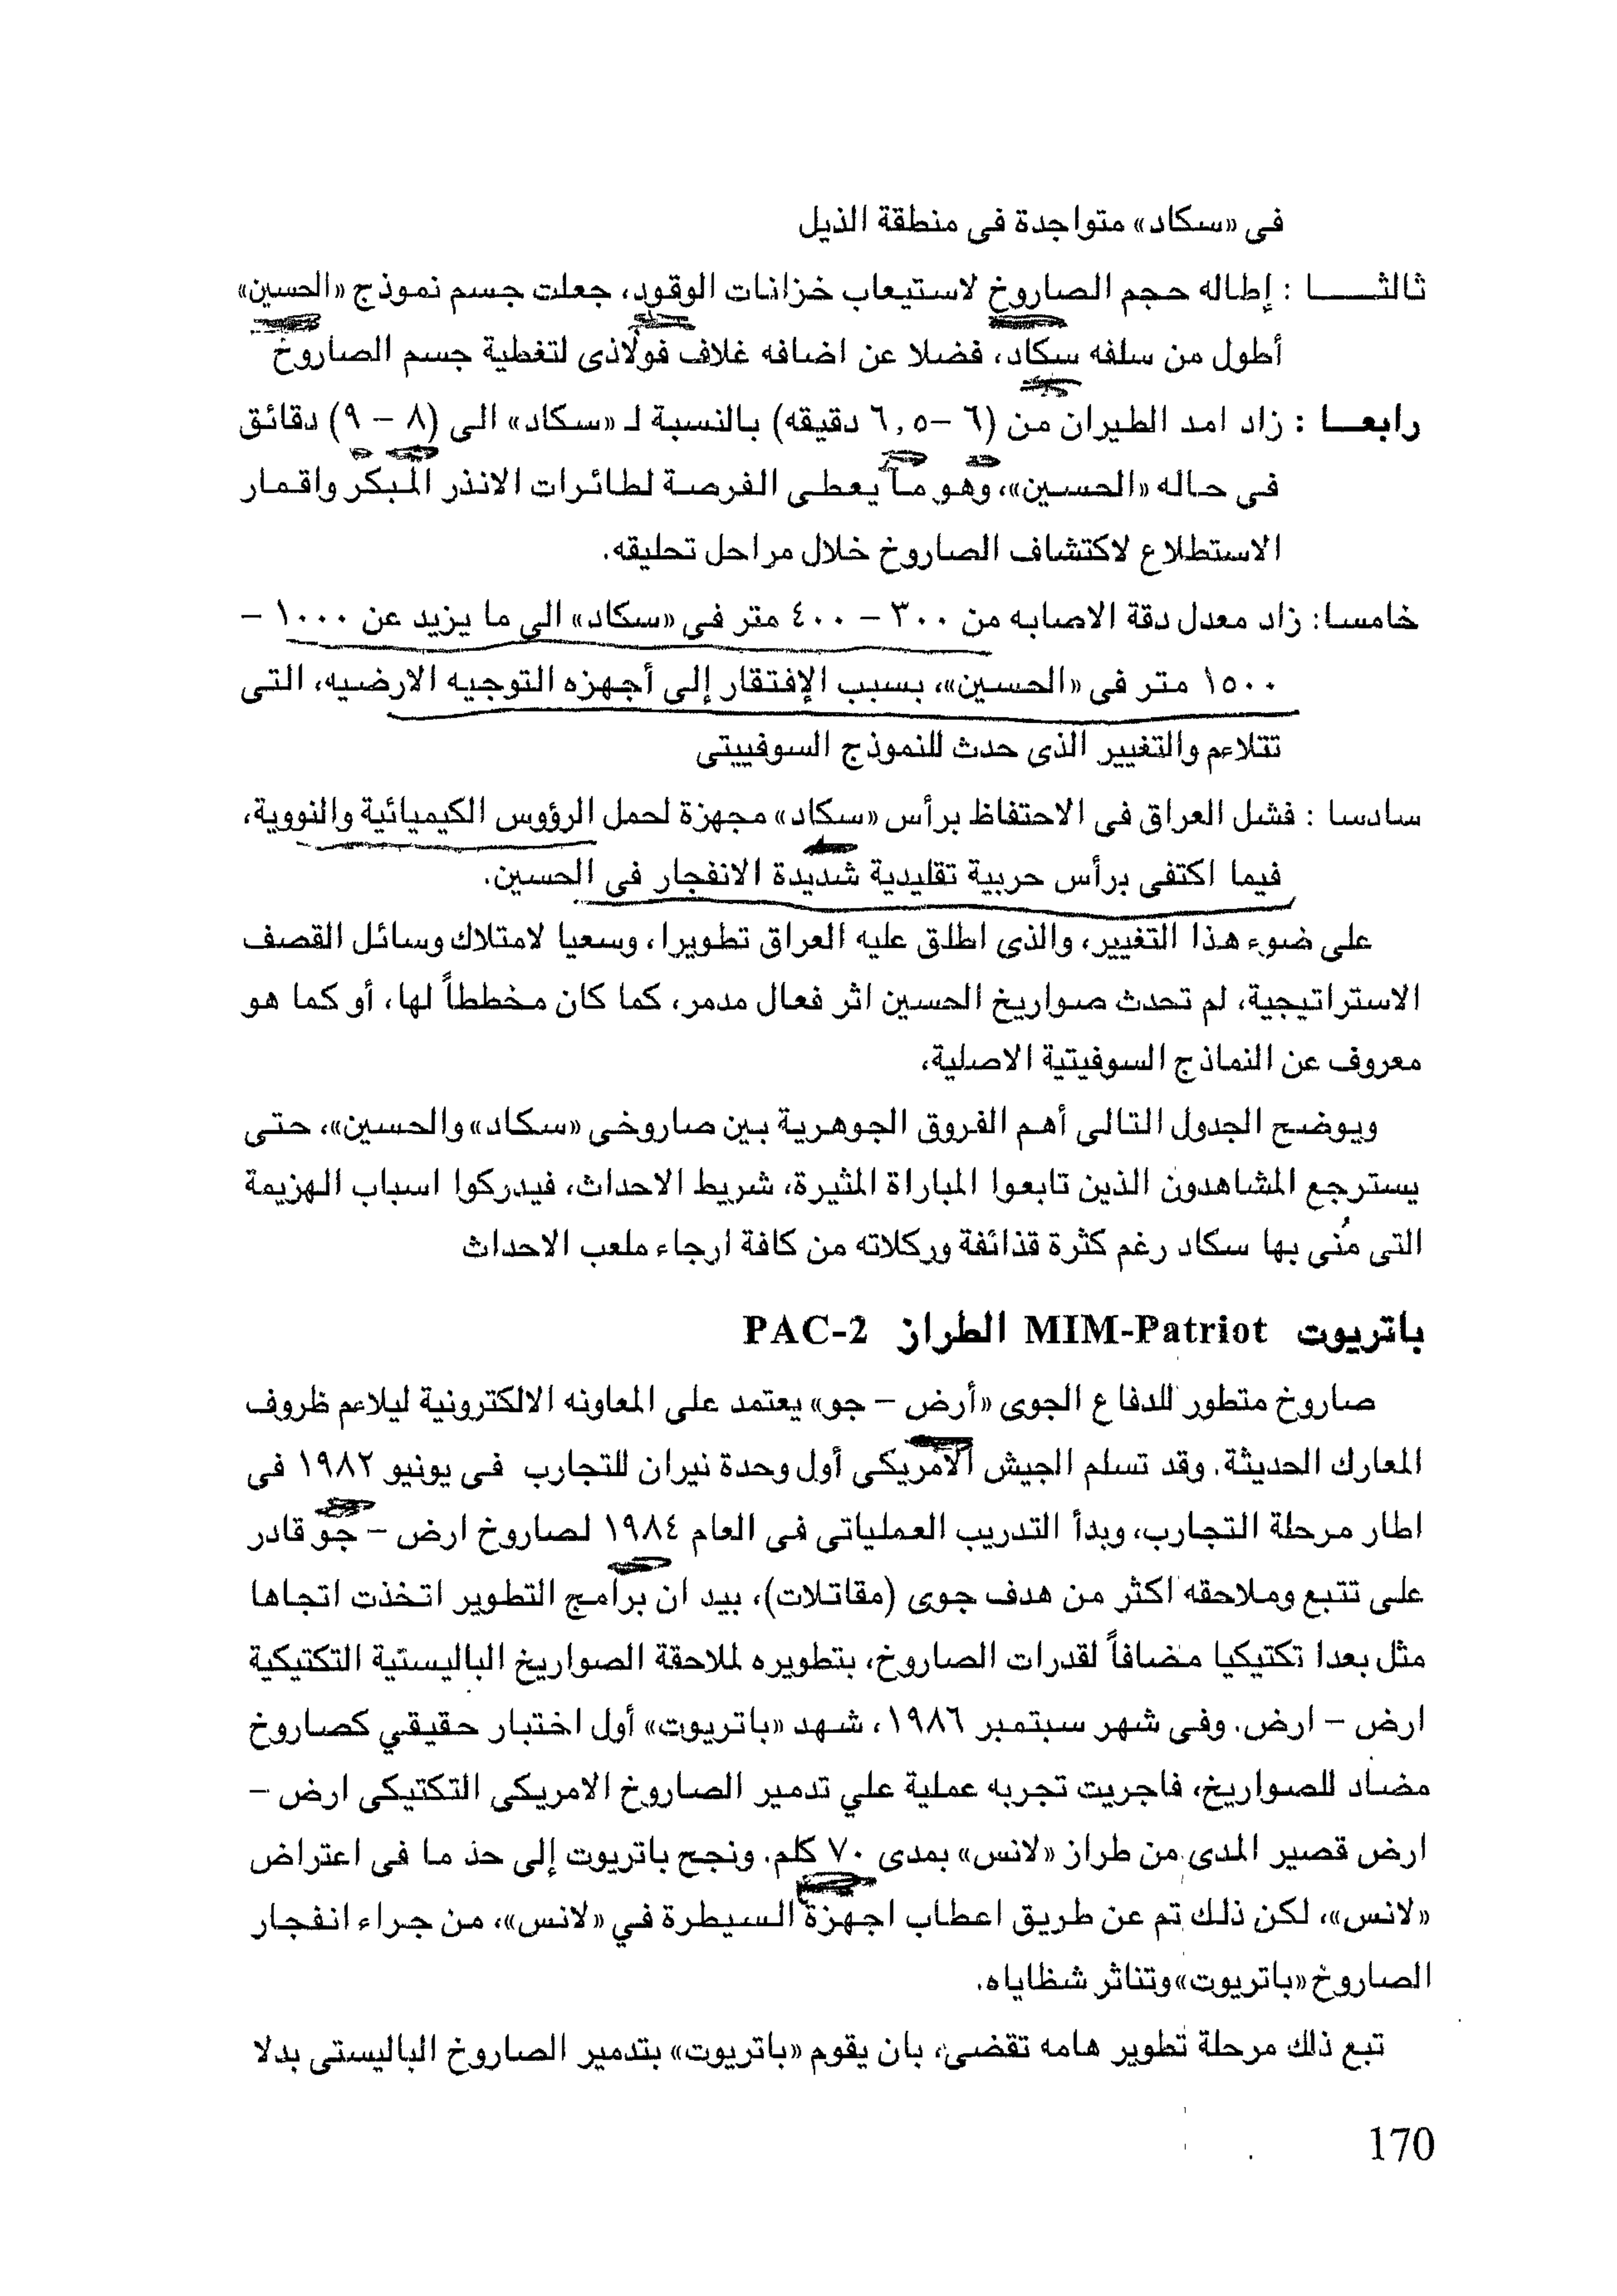 فى «سكاد» متواجدة فى منطقة الذيل
ثالثـــا : إطاله حجم الصاروخ لاستيعاب خزانات الوقود، جعلت جسم نموذج «الحسين»
أطول من سلفه سكاد، فضلا عن اضافه غلاف فولاذى لتغطية جسم الصاروخ
رابعـا : زاد امد الطيران من (٦ –٦,٥ دقيقه) بالنسبة لـ «سكاد» الى (٨ – ٩) دقائق
فى حاله «الحسين»، وهو ما يعطى الفرصة لطائرات الانذر المبكر واقمار
الاستطلاع لاكتشاف الصاروخ خلال مراحل تحليقه.
خامسا: زاد معدل دقة الاصابه من ٣٠٠ – ٤٠٠ متر فى «سكاد» الى ما يزيد عن ١٠٠٠ –
١٥٠٠ متر فى «الحسين»، بسبب الإفتقار إلى أجهزه التوجيه الارضيه، التى
تتلاءم والتغيير الذى حدث للنموذج السوفييتى
سادسا : فشل العراق فى الاحتفاظ برأس «سكاد» مجهزة لحمل الرؤوس الكيميائية والنووية،
فيما اكتفى برأس حربية تقليدية شديدة الانفجار فى الحسين.
على ضوء هذا التغيير، والذى اطلق عليه العراق تطويرا، وسعيا لامتلاك وسائل القصف
الاستراتيجية، لم تحدث صواريخ الحسين اثر فعال مدمر، كما كان مخططاً لها، أو كما هو
معروف عن النماذج السوفيتية الاصلية،
ويوضح الجدول التالى أهم الفروق الجوهرية بين صاروخى «سكاد» والحسين»، حتى
يسترجع المشاهدون الذين تابعوا المباراة المثيرة، شريط الاحداث، فيدركوا اسباب الهزيمة
التى مُنى بها سكاد رغم كثرة قذائفة وركلاته من كافة ارجاء ملعب الاحداث
باتريوت MIM-Patriot الطراز PAC-2
صاروخ متطور للدفاع الجوى «أرض – جو» يعتمد على المعاونه الالكترونية ليلاءم ظروف
المعارك الحديثة. وقد تسلم الجيش الأمريكى أول وحدة نيران للتجارب فى يونيو ١٩٨٢ فى
اطار مرحلة التجارب، وبدأ التدريب العملياتى فى العام ١٩٨٤ لصاروخ ارض – جو قادر
على تتبع وملاحقه اكثر من هدف جوى (مقاتلات)، بيد ان برامج التطوير اتخذت اتجاها
مثل بعدا تكتيكيا مضافاً لقدرات الصاروخ، بتطويره لملاحقة الصواريخ الباليستية التكتيكية
ارض – ارض. وفى شهر سبتمبر ١٩٨٦، شهد «باتريوت» أول اختبار حقيقي كصاروخ
مضاد للصواريخ، فاجريت تجربه عملية علي تدمير الصاروخ الامريكى التكتيكى ارض –
ارض قصير المدى من طراز «لانس» بمدى ٧٠ كلم. ونجح باتريوت إلى حذ ما فى اعتراض
«لانس»، لكن ذلك تم عن طريق اعطاب اجهزة السيطرة في «لانس»، من جراء انفجار
الصاروخ «باتريوت» وتناثر شظاياه.
تبع ذلك مرحلة تطوير هامه تقضى، بان يقوم «باتريوت» بتدمير الصاروخ الباليستى بدلا
170